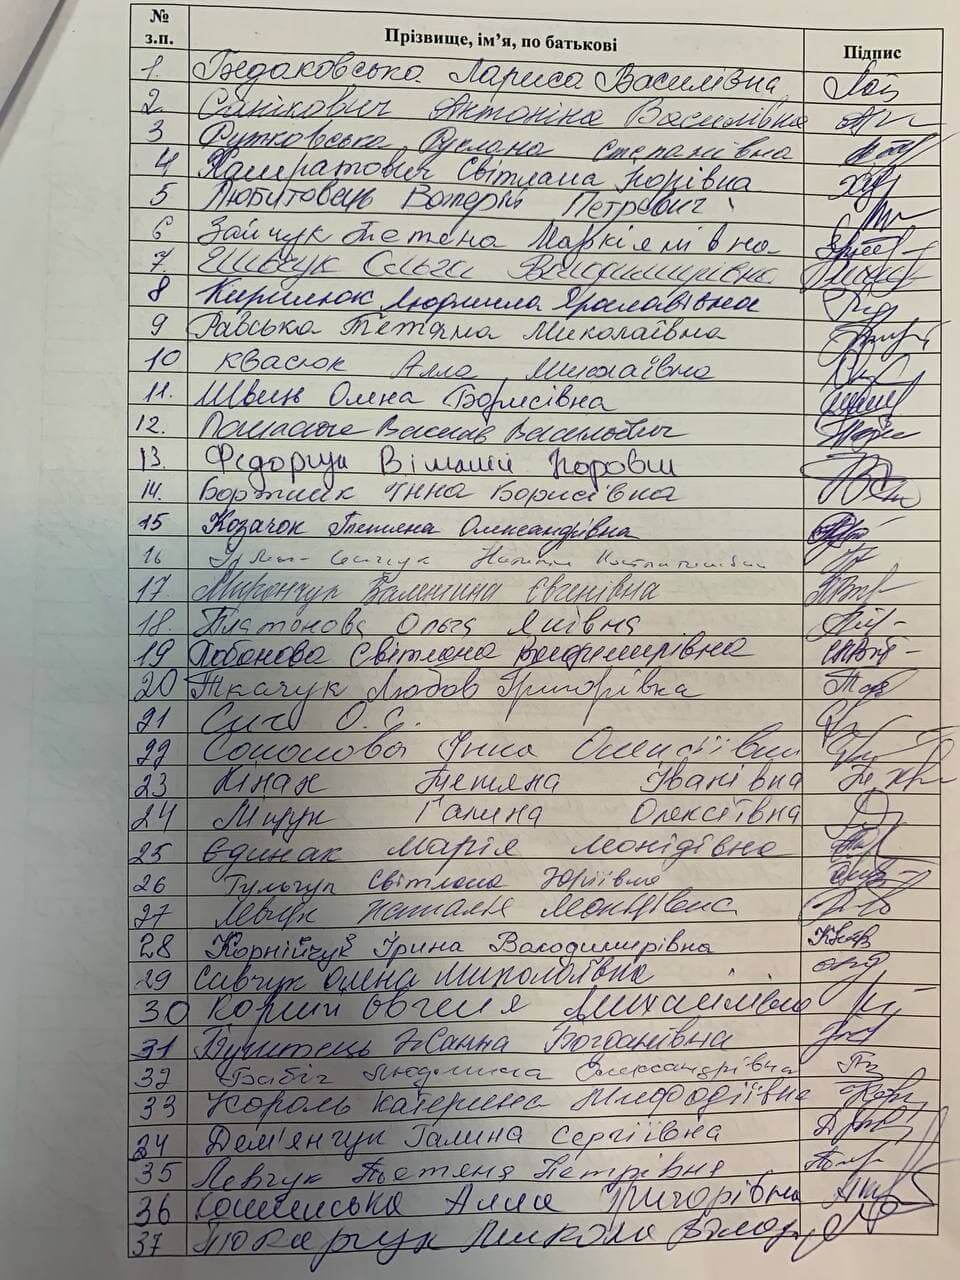 № з.п. Прізвище, ім’я, по батькові Підпис
1. Бедаковська Лариса Василівна
2. Санікович Антоніна Василівна
3 Рутковська Руслана Степанівна
4 Світлана Ігорівна
5 Любитовець Валерій Петрович
6 Зайчук Тетяна Маркіянівна
7. Ольга Володимирівна
8 Кирилюк Людмила Ярославівна
9 Равська Тетяна Миколаївна
10 Квасюк Алла Миколаївна
11. Швець Олена Борисівна
12. Василь Васильович
13. Федорчук Віталій Ігорович
14. Бортник Інна Борисівна
15 Козачок Тетяна Олександрівна
16 Наталія
17. Мирончук Валентина Євгенівна
18. Платонова Ольга Яківна
19 Лобанова Світлана Володимирівна
20 Ткачук Любов Григорівна
21 О. С.
22 Соколова Інна Олексіївна
23 Кінах Тетяна Іванівна
24 Мирук Галина Олексіївна
25 Єдинак Марія Леонідівна
26 Гульчук Світлана Юріївна
27 Левчук Наталія Леонідівна
28 Корнійчук Ірина Володимирівна
29 Савчук Олена Миколаївна
30 Корній Євгенія Михайлівна
31 Жанна Богданівна
32 Бабіч Людмила Олександрівна
33 Король Катерина Мефодіївна
34 Дем'янчук Галина Сергіївна
35 Левчук Тетяна Петрівна
36 Алла Григорівна
37 Токарчук Микола